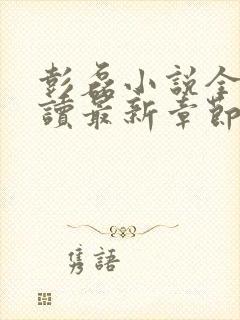 彭磊小說全
讀最新章節
雋語